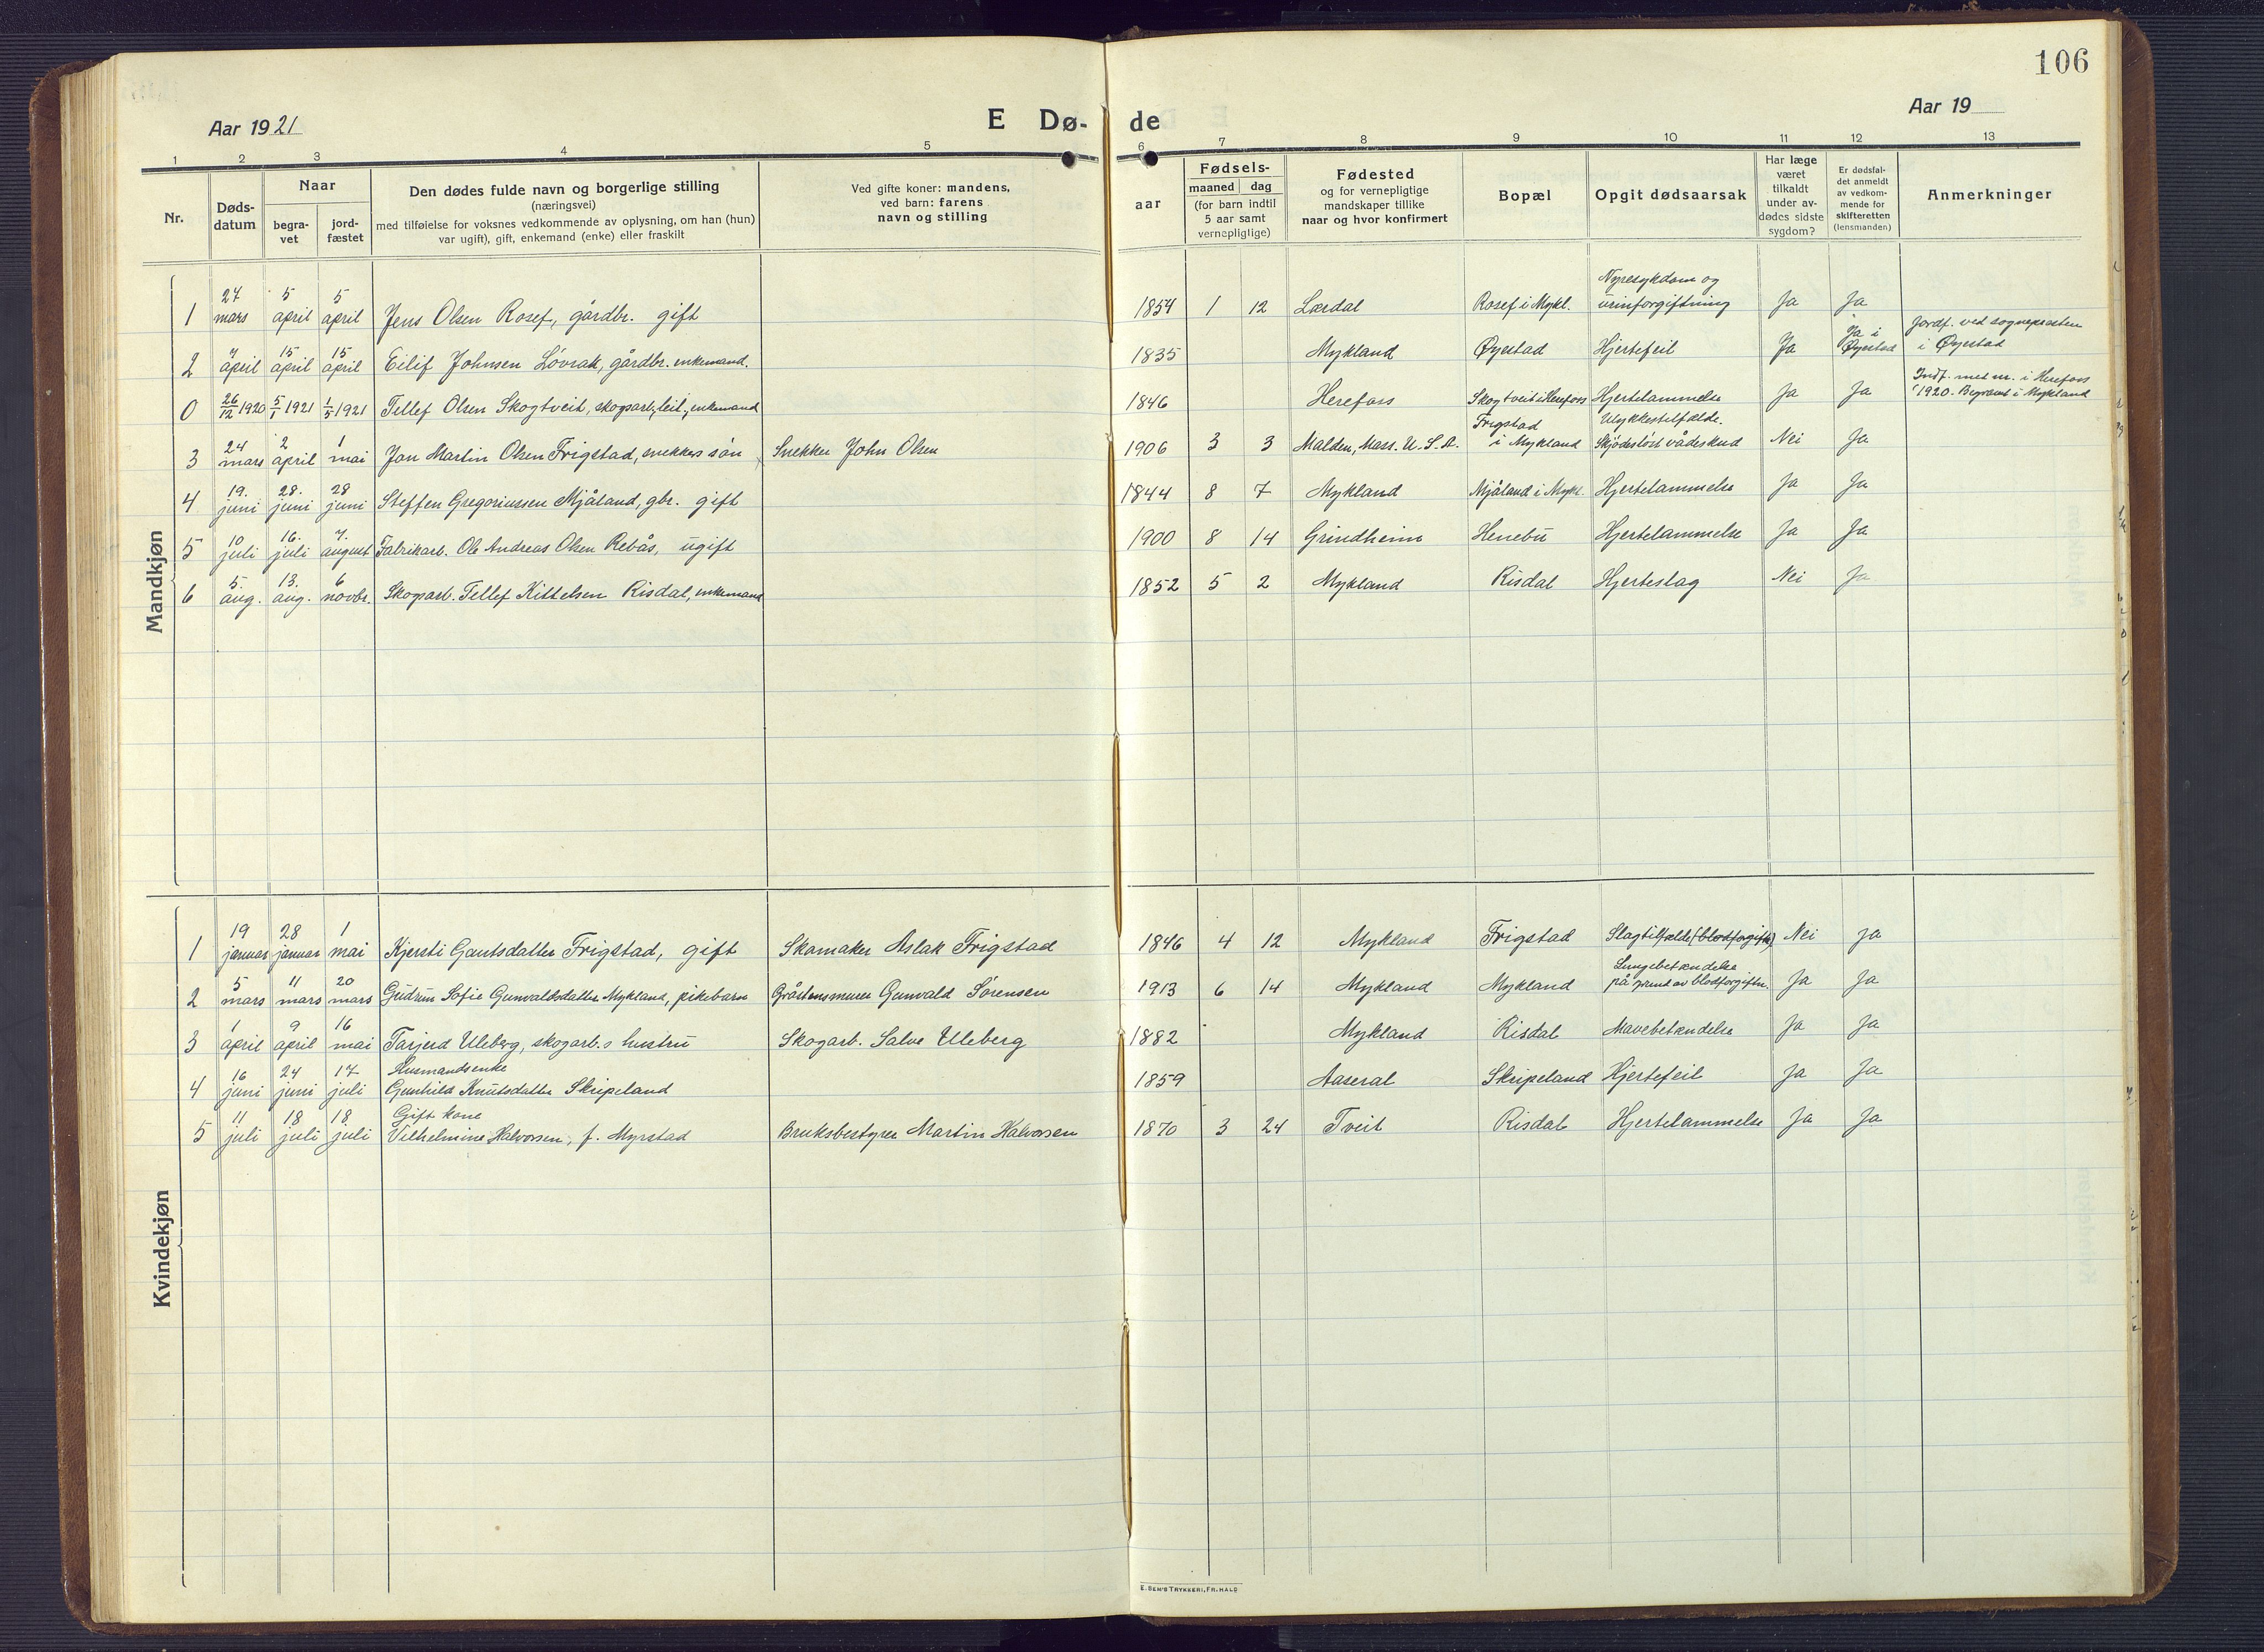 106
Aar 1921
E Dø- de
Aar 19
1 2 3 4 5 6 7 8 9 10 11 12 13
Nr.
Døds-
datum
Naar
begra-
vet
jord-
fæstet
Den dødes fulde navn og borgerlige stilling
(næringsvei)
med tilføielse for voksnes vedkommende av oplysning, om han (hun)
var ugift), gift, enkemand (enke) eller fraskilt
Ved gifte koner: mandens,
ved barn: farens
navn og stilling
aar
Fødsels-
maaned dag
(for barn indtil
5 aar samt
vernepliglige)
Fødested
og for vernepligtige
mandskaper tillike
naar og hvor konfirmert
Bopæl
Opgit dødsaarsak
Har læge
været
tilkaldt
under av-
dødes sidste
sygdom?
Er dødsfal-
det anmeldt
av vedkom-
mende for
skifteretten
(lensmanden)
Anmerkninger
Mandkjøn
24 5 5 Nyresykdom og
1 mars april april Jens Olsen Rosef, gårdbr. gift 1854 1 12 Lærdal Rosef i Mykl. urinforgiftning Ja Ja
7 15 15 Ja i Jordf. ved sognepresten
2 april april april Eilif Johnsen Lövrak, gårdbr. enkemand. 1835 Mykland Øyestad Hjertefeil Ja Øyestad i Øyestad
Indf. met nr. i Herefoss
0 26/12 1920 5/1 1921 1/5 1921 Tellef Olsen Skogtveit, skogsarb., leil., enkemand 1846 Herefoss Skogtveit i Herefoss Hjertelammelse Ja Ja 1920. Begravet i Mykland
24 2 1 Frigstad Ulykkestilfælde.
3 mars april mai Jan Martin Olsen Frigstad, snekkers sön Snekker John Olsen 1906 3 3 Malden, Mass. U.S.A. i Mykland Skjödeslöst vådeskud Nei Ja
19. 28. 28
4 juni juni juni Steffen Gregoriussen Mjåland, gbr. gift 1844 8 7 Mykland Mjåland i Mykl. Hjertelammelse Ja Ja
10 16. 7.
5 juli juli august Fabrikarb. Ole Andreas Olsen Rebås, ugift 1900 8 14 Grindheim Henebu Hjertelammelse Ja Ja
5. 13. 6
6 aug. aug. novbr. Skogsarb. Tellef Kittelsen Risdal, enkemand 1852 5 2 Mykland Risdal Hjerteslag Nei Ja
Kvindekjøn
19 28 1
1 januar januar mai Kjersti Gautsdatter Frigstad, gift Skomaker Aslak Frigstad 1846 4 12 Mykland Frigstad Slagtilfælde (blodforgiftn.) Nei Ja
5 11 20 Lungebetændelse
2 mars mars mars Gudrun Sofie Gunvaldsdatter Mykland, pikebarn Gråstensmurer Gunvald Sörensen 1913 6 14 Mykland Mykland på grund av blodforgiftn. Ja Ja
1 9 16
3 april april mai Tarjerd Uleberg, skogarb.s hustru Skogarb. Salve Uleberg 1882 Mykland Risdal Mavebetændelse Ja Ja
16 24 17 Husmandsenke
4 juni juni juli Gunhild Knutsdatter Skripeland 1859 Aaseral Skripeland Hjertefeil Ja Ja
11 18 18. Gift kone
5 juli juli juli Vilhelmine Halvorsen, f. Myrstad Bruksbestyrer Martin Halvorsen 1870 3 24 Tveit Risdal Hjertelammelse Ja Ja
E. SEM'S TRYKKERI, FR.HALD